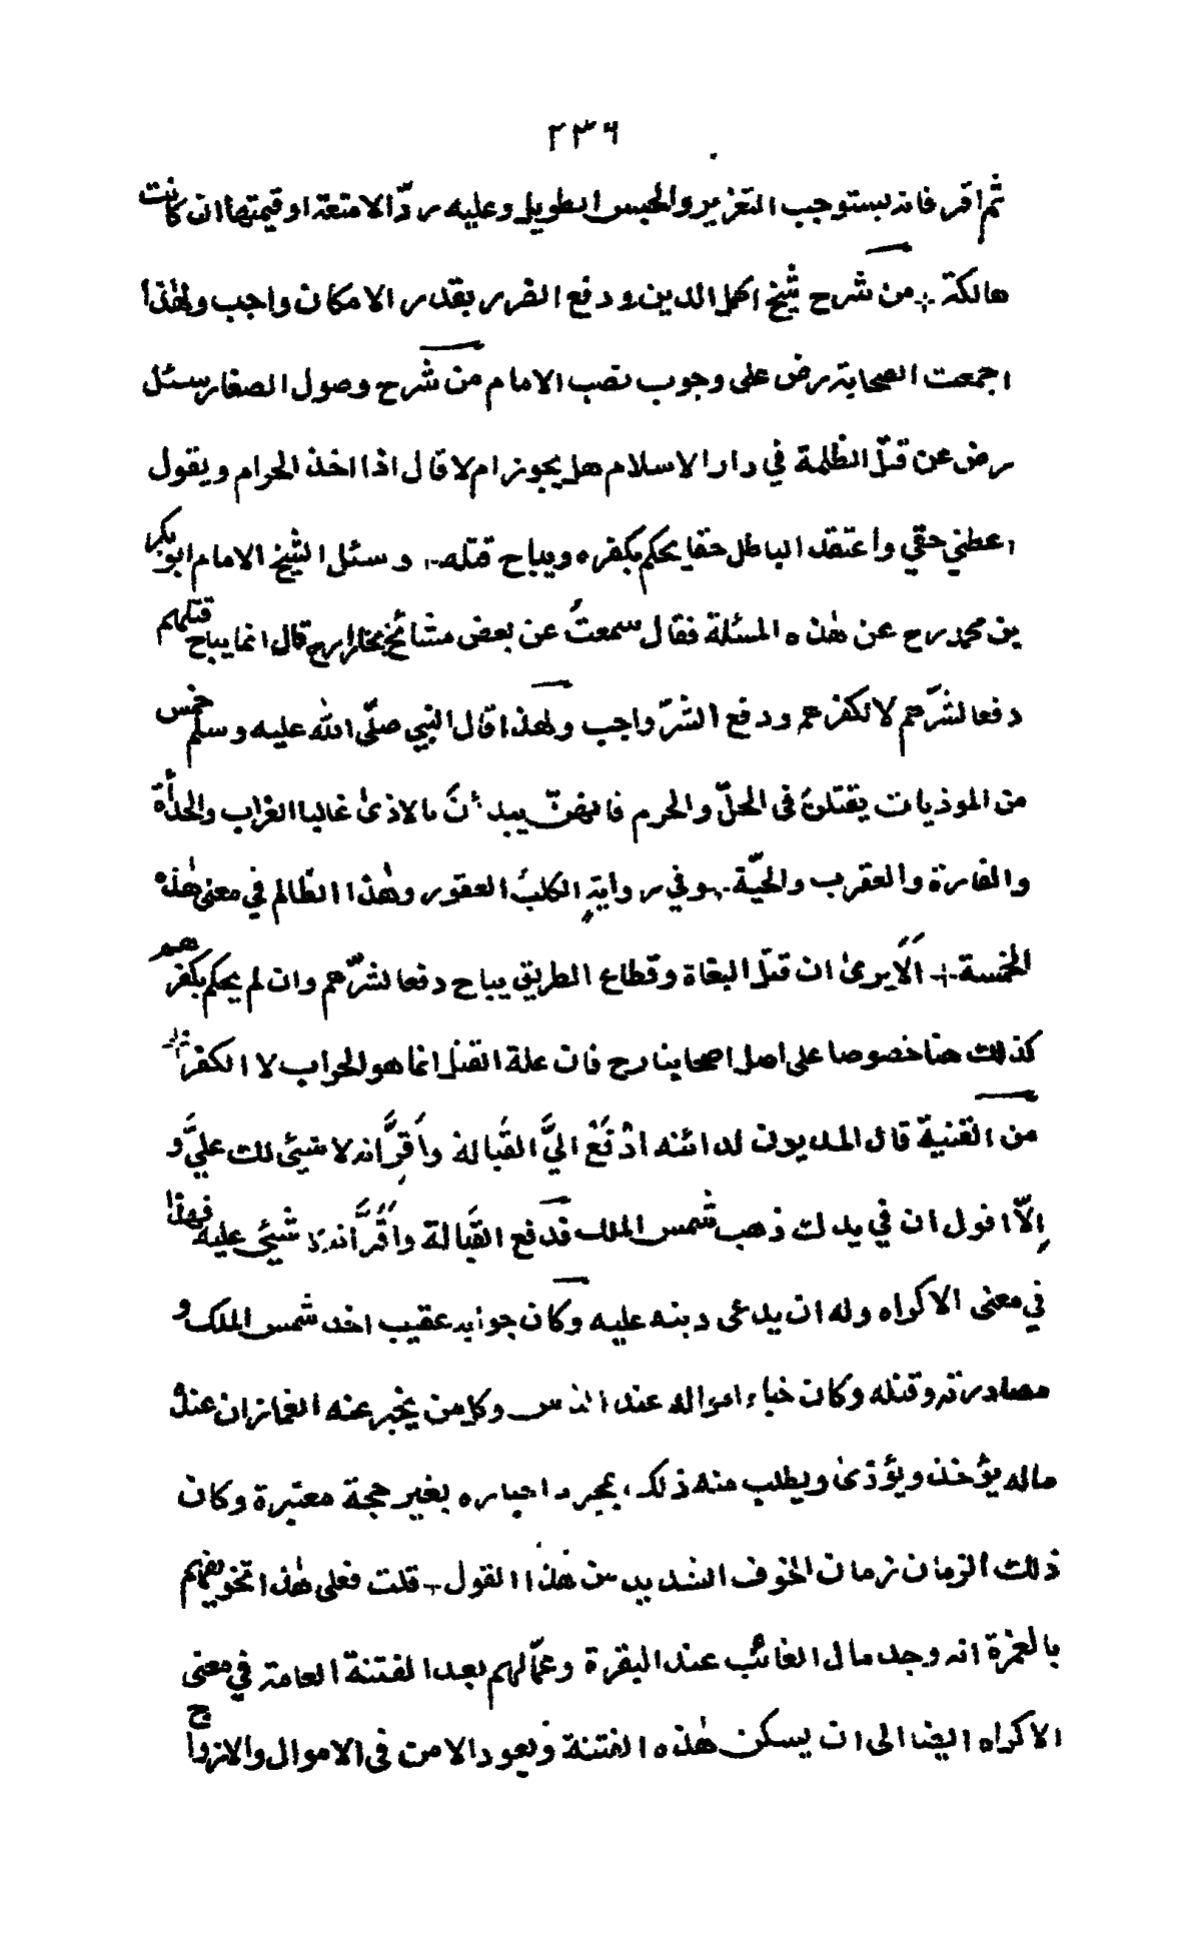 ٢٣٦
ثم اقر فانه يستوجب التعزير والحبس الطويل وعليه ردّ الامتعة او قيمتها ان كانت
هالكة ÷ من شرح شيخ اكمل الدين ودفع الضرر بقدر الامكان واجب ولهٰذا
اجمعت الصحابة رض على وجوب نصب الامام من شرح وصول الصفار سئل
رض عن قتل الظلمة في دار الاسلام هل يجوز ام لا قال اذا اخذ الحرام ويقول
اعطني حقي واعتقد الباطل حقا يحكم بكفره ويباح قتله ÷ وسئل الشيخ الامام ابو بكر
بن محمد رح عن هٰذه المسئلة فقال سمعتُ عن بعض مشائخ بخارا رح قال انما يباح قتلهم
دفعا لشرّهم لا لكفرهم ودفع الشرّ واجب ولهذا قال النبي صلّى الله عليه وسلم خمس
من الموذيات يقتلن فى الحلّ والحرم فانهنّ يبدأنَ بالاذىٰ غالبا الغراب والحدأة
والفارة والعقرب والحيّة ÷ وفي روايةٍ الكلبُ العقور وهٰذا الظالم في معنى هٰذه
الخمسة ÷ اَلَا يرىٰ ان قتل البغاة وقطاع الطريق يباح دفعا لشرّهم وان لم يحكم بكفرهم
كذلك هنا خصوصا على اصل اصحابنا رح فان علة القتل انما هو الحراب لا الكفر
من القنية قال المديون لدائنه ادْفَعْ اليَّ القَبالة واَقِرَّ انه لا شيئ لك عليَّ و
إلاّ اقول ان في يدك ذهب شمس الملك فدفع القَبالة واَقَرَّ انه لا شيئ عليه فهذا
في معنى الاكراه وله ان يدعى دينه عليه وكان جوابه عقيب اخذ شمس الملك و
مصادرته وقتله وكان خباء امواله عند الناس وكل من يخبر عنه الغماز ان عنده
ماله يؤخذ ويؤذىٰ ويطلب منه ذلك بمجرد اخباره بغير حجة معتبرة وكان
ذلك الزمان زمان الخوف الشديد من هٰذا القول ÷ قلت فعلى هٰذا تخويفهم
بالغمزة انه وجد مال الغائب عند البقرة وعمّالهم بعد الفتنة العامة في معنى
الاكراه ايضا الى ان يسكن هٰذه الفتنة ويعود الامن فى الاموال والازواج